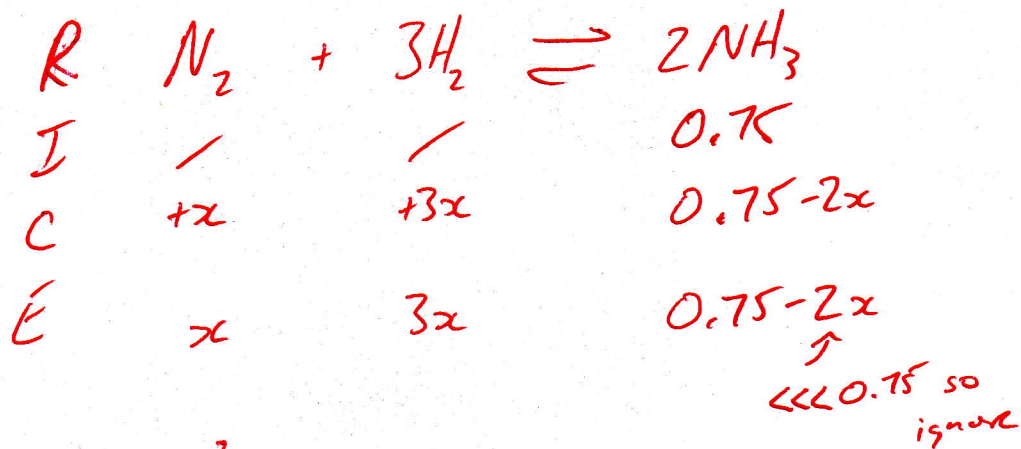 R N₂ + 3H₂ ⇌ 2NH₃
I / / 0.75
C +x +3x 0.75-2x
E x 3x 0.75-2x
↑
<<<0.75 so
ignore